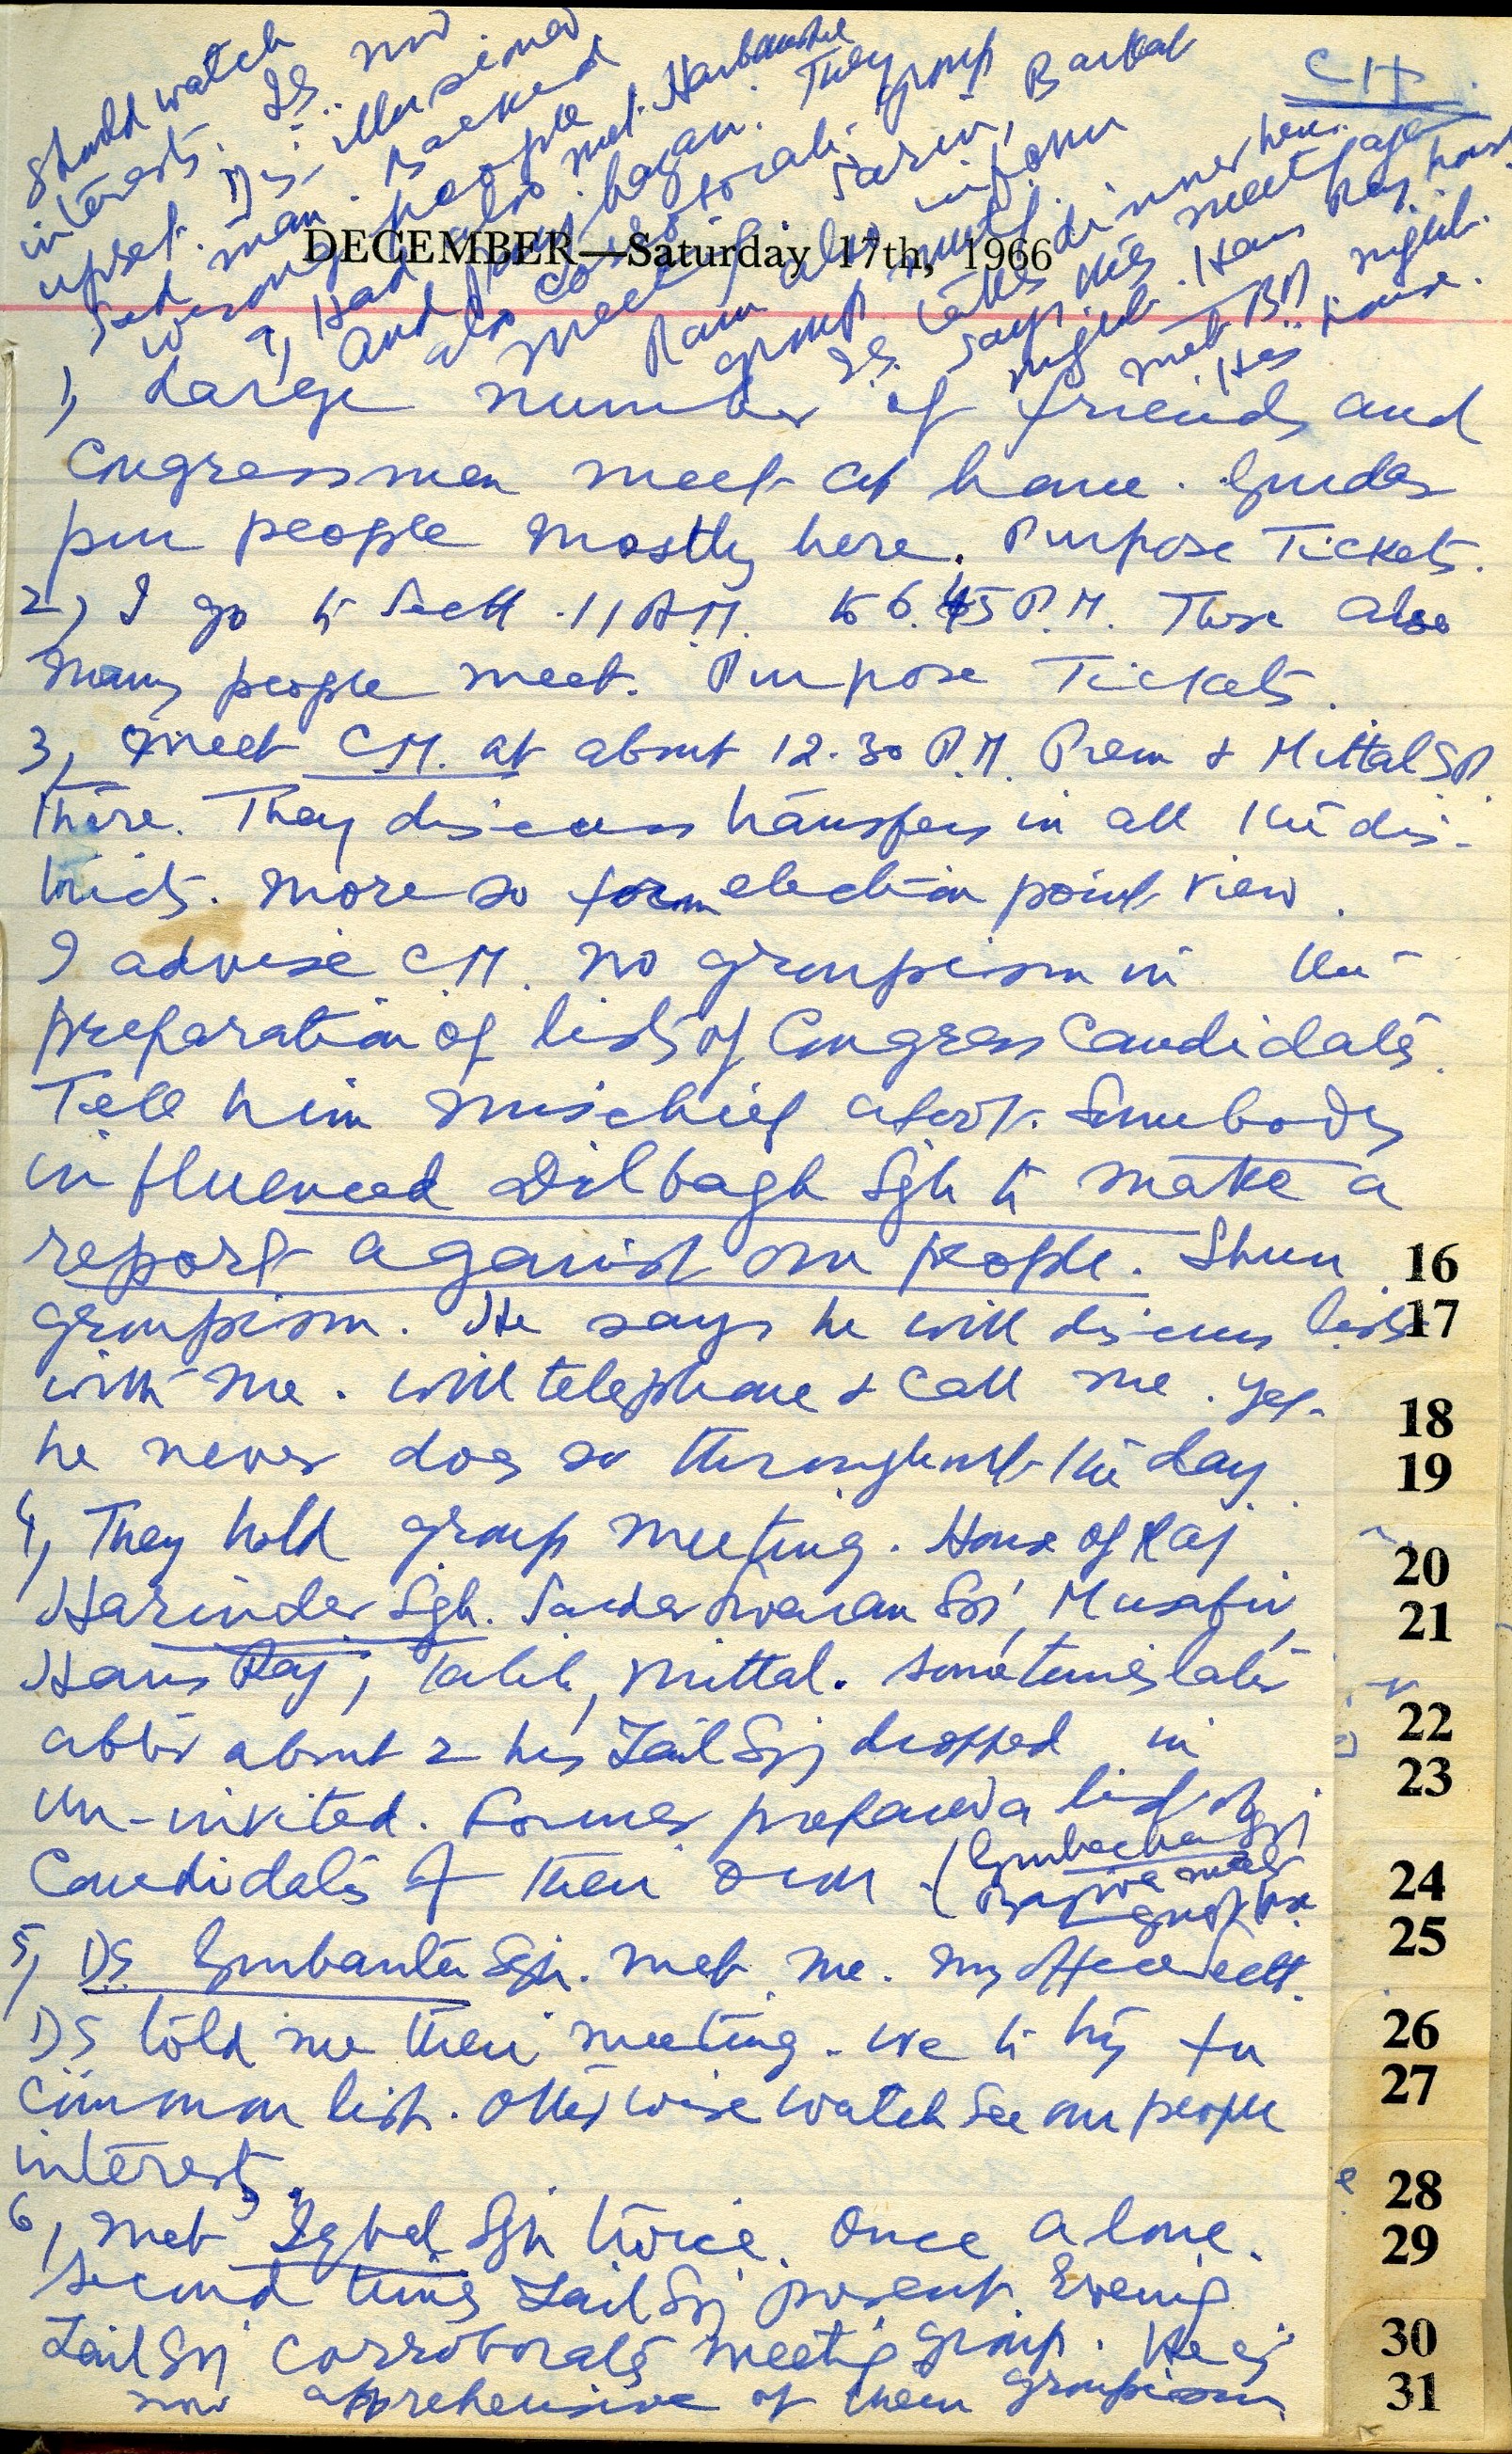 CH
should watch
interests. IS. now
upset. Disillusioned
sad man. Backed
wrong people
7, Had also met Harbanslal
and Bhagan. They
also corroborate group
meeting. Sarin, Barkat
Ram also inform
group meeting.
IS. takes dinner here.
says this meet again
night. Hans Raj house
met BD night.
His house.
DECEMBER—Saturday 17th, 1966
1, Large number of friends and
Congressmen meet at home. Gurdas
pur people mostly here. Purpose Tickets.
2, I go to Sectt. 11 A.M. to 6.45 P.M. There also
many people meet. Purpose Tickets.
3, Meet C.M. at about 12.30 P.M. Prem & Mittal SP.
there. They discuss transfers in all the dis-
tricts. More so from election point view.
I advise C.M. no groupism in the
preparation of lists of Congress Candidates.
Tell him mischief afoot. Somebody
influenced Dilbagh Sgh to make a
report against our people. Shun
groupism. He says he will discuss lists
with me. Will telephone & call me. Yet
he never does so throughout the day.
4, They hold group meeting. House of Raj
Harinder Sgh. Sardar Swaran Sgh, Musafir,
Hans Raj, Talib, Mittal. Sometimes later
after about 2 hrs Zail Sgh dropped in
un-invited. Former prepared a list of
Candidates of their own. (Gurbachan Sgh
Bajwa
5, DS Gurbanta Sgh. met me. My office Sectt.
DS told me their meeting. We to try for
common list. Otherwise watch see our people
interests.
6, Met Iqbal Sgh twice. Once alone.
Second time Zail Sgh present. Evening
Zail Sgh corroborates meeting group. He is
now apprehensive of them groupism
16
17
18
19
20
21
22
23
24
25
26
27
28
29
30
31